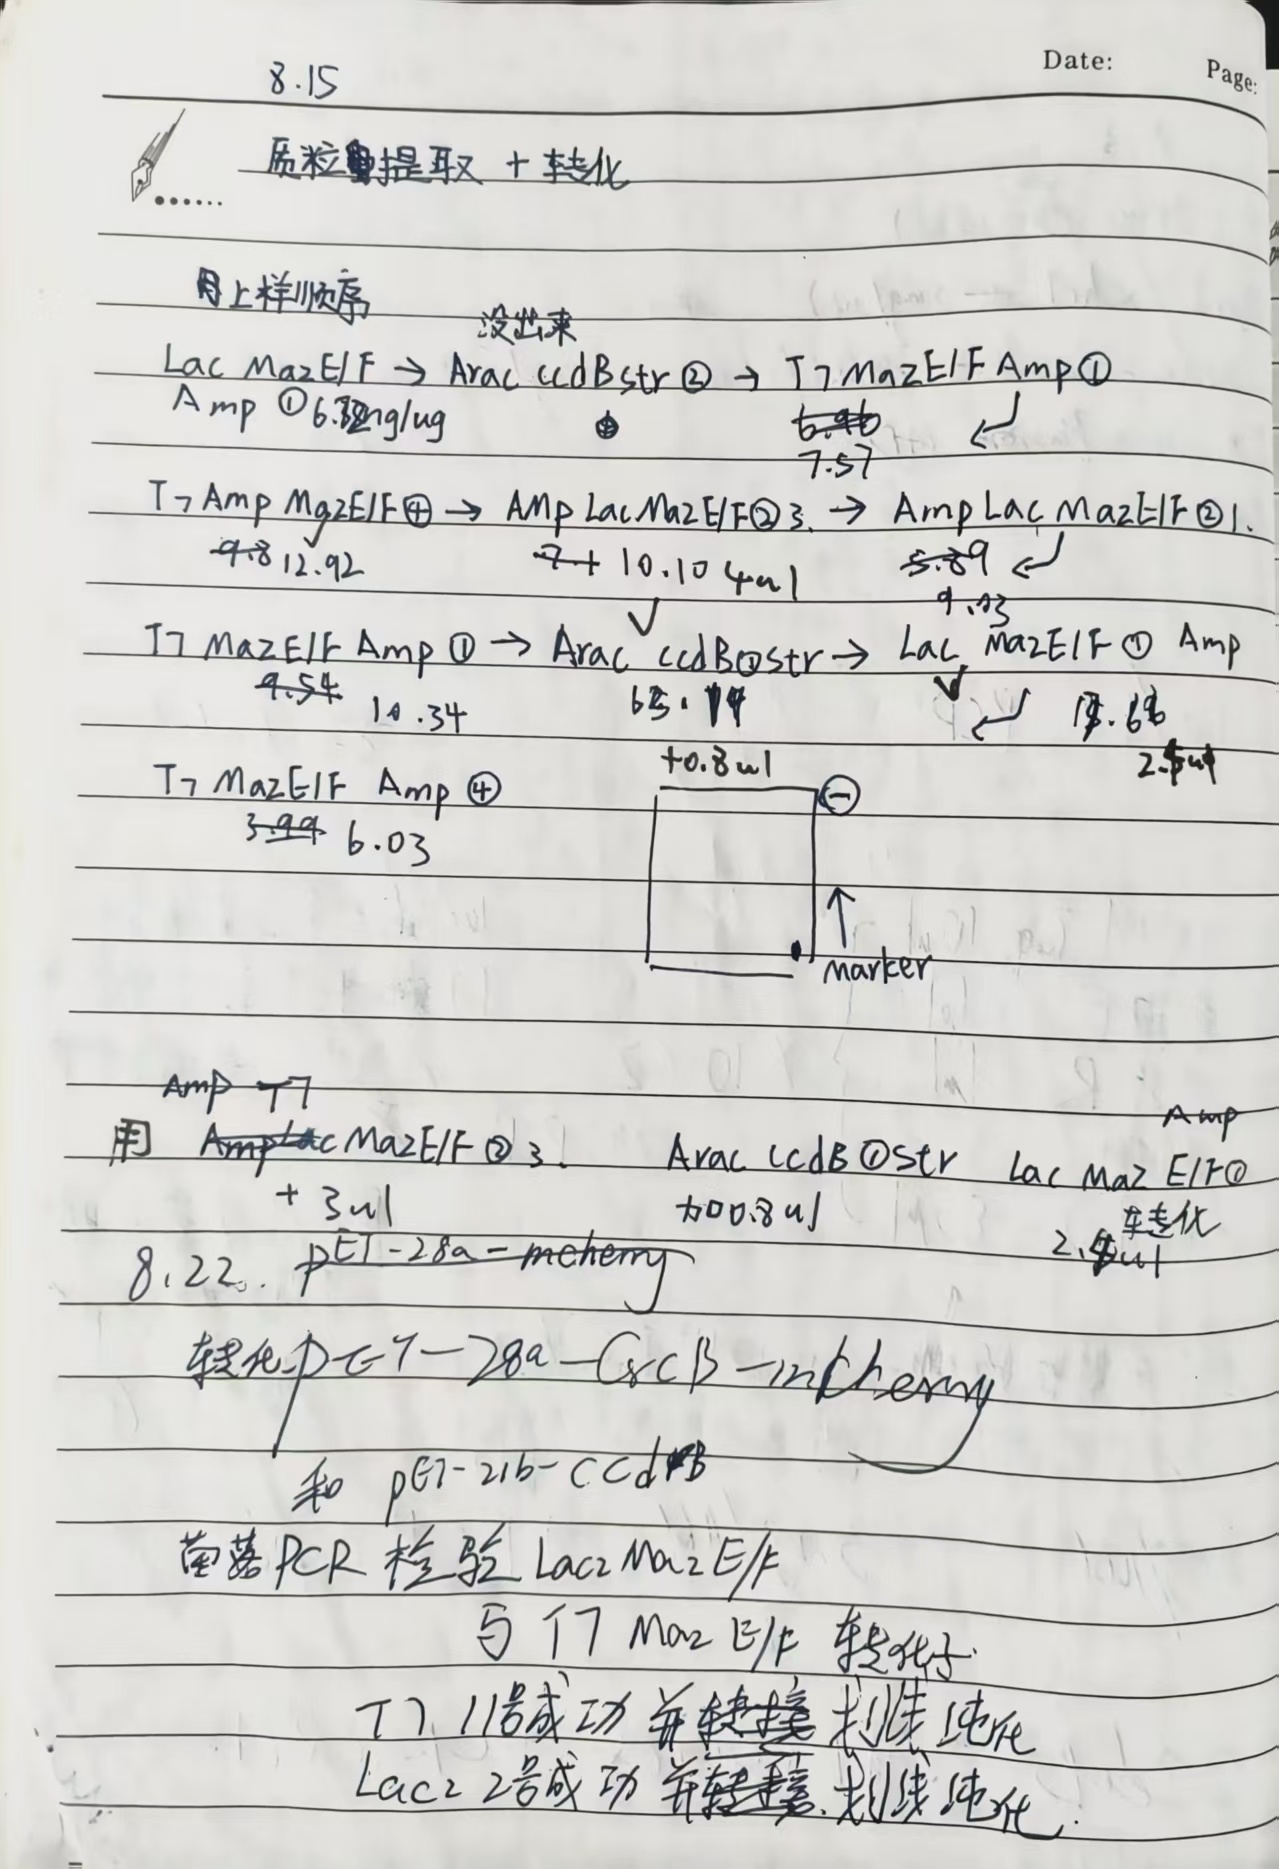 Date: Page:
8.15
质粒提取 + 转化
上样顺序
没出来
Lac MazE/F → Arac ccdB str ② → T7 MazE/F Amp ①
Amp ① ng/ug
6.96
7.57
T7 Amp MazE/F ④ → AMp Lac MazE/F ② 3. → Amp Lac MazE/F ② 1.
9.8 12.92 7.+ 10.10 4ul 5.89
9.03
T7 MazE/F Amp ① → Arac ccdB ① str → Lac MazE/F ① Amp
9.54 10.34 65.
+0.8ul
T7 MazE/F Amp ④ ⊖
3.99 6.03
marker
Amp T7
Amp
用 Amp Lac MazE/F ② 3. Arac ccdB ① str Lac Maz E/F ①
+ 3ul 0.8ul 转化
8.22. pET-28a-mcherry
转化 pET-28a- -mcherry
和 pET-21b-ccdB
菌落PCR 检验 Lacz Maz E/F
与 T7 Maz E/F 转化子.
T7 11号成功 并转接 划线纯化
Lacz 2号成功 并转接. 划线纯化.